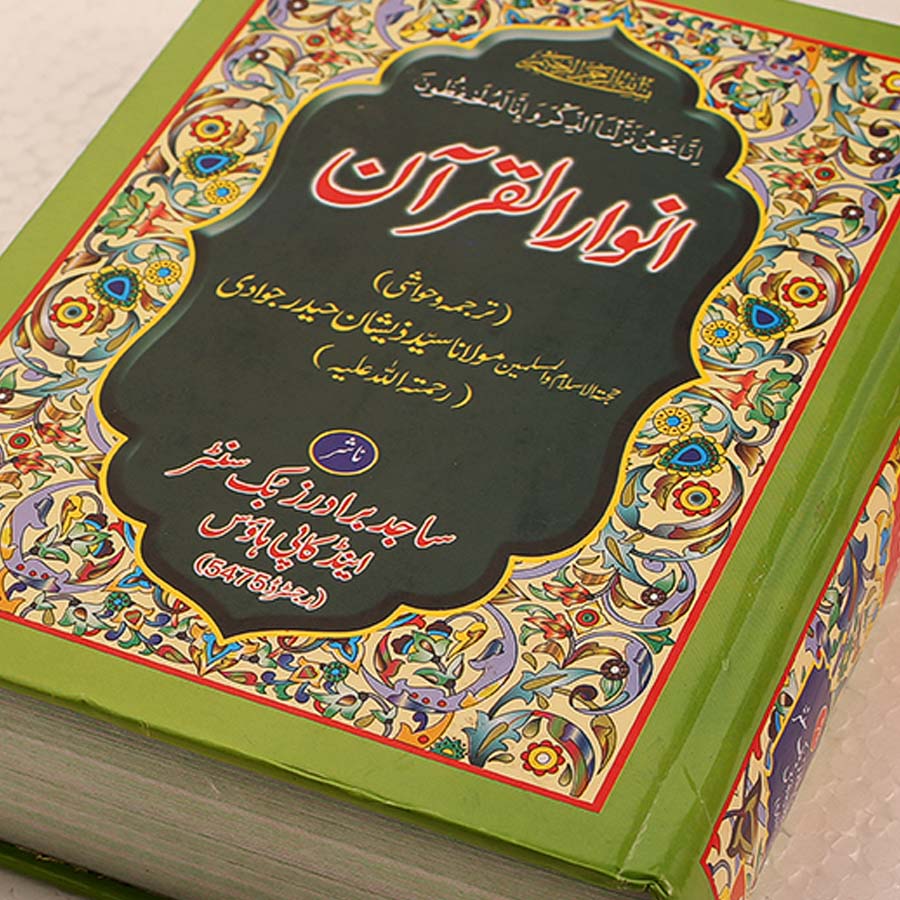 بسم الله الرحمن الرحيم
اِنَّا نَحْنُ نَزَّلْنَا الذِّكْرَ وَ اِنَّا لَهُ لَحٰفِظُوْنَ
انوار القرآن
(ترجمہ وحواشی)
حجۃ الاسلام والمسلمین مولانا سیّد ذیشان حیدر جوادی
(رحمتہ اللہ علیہ)
ناشر
ساجد برادرز بک سنٹر
اینڈ کاپی ہاؤس
(رجسٹرڈ 5475)